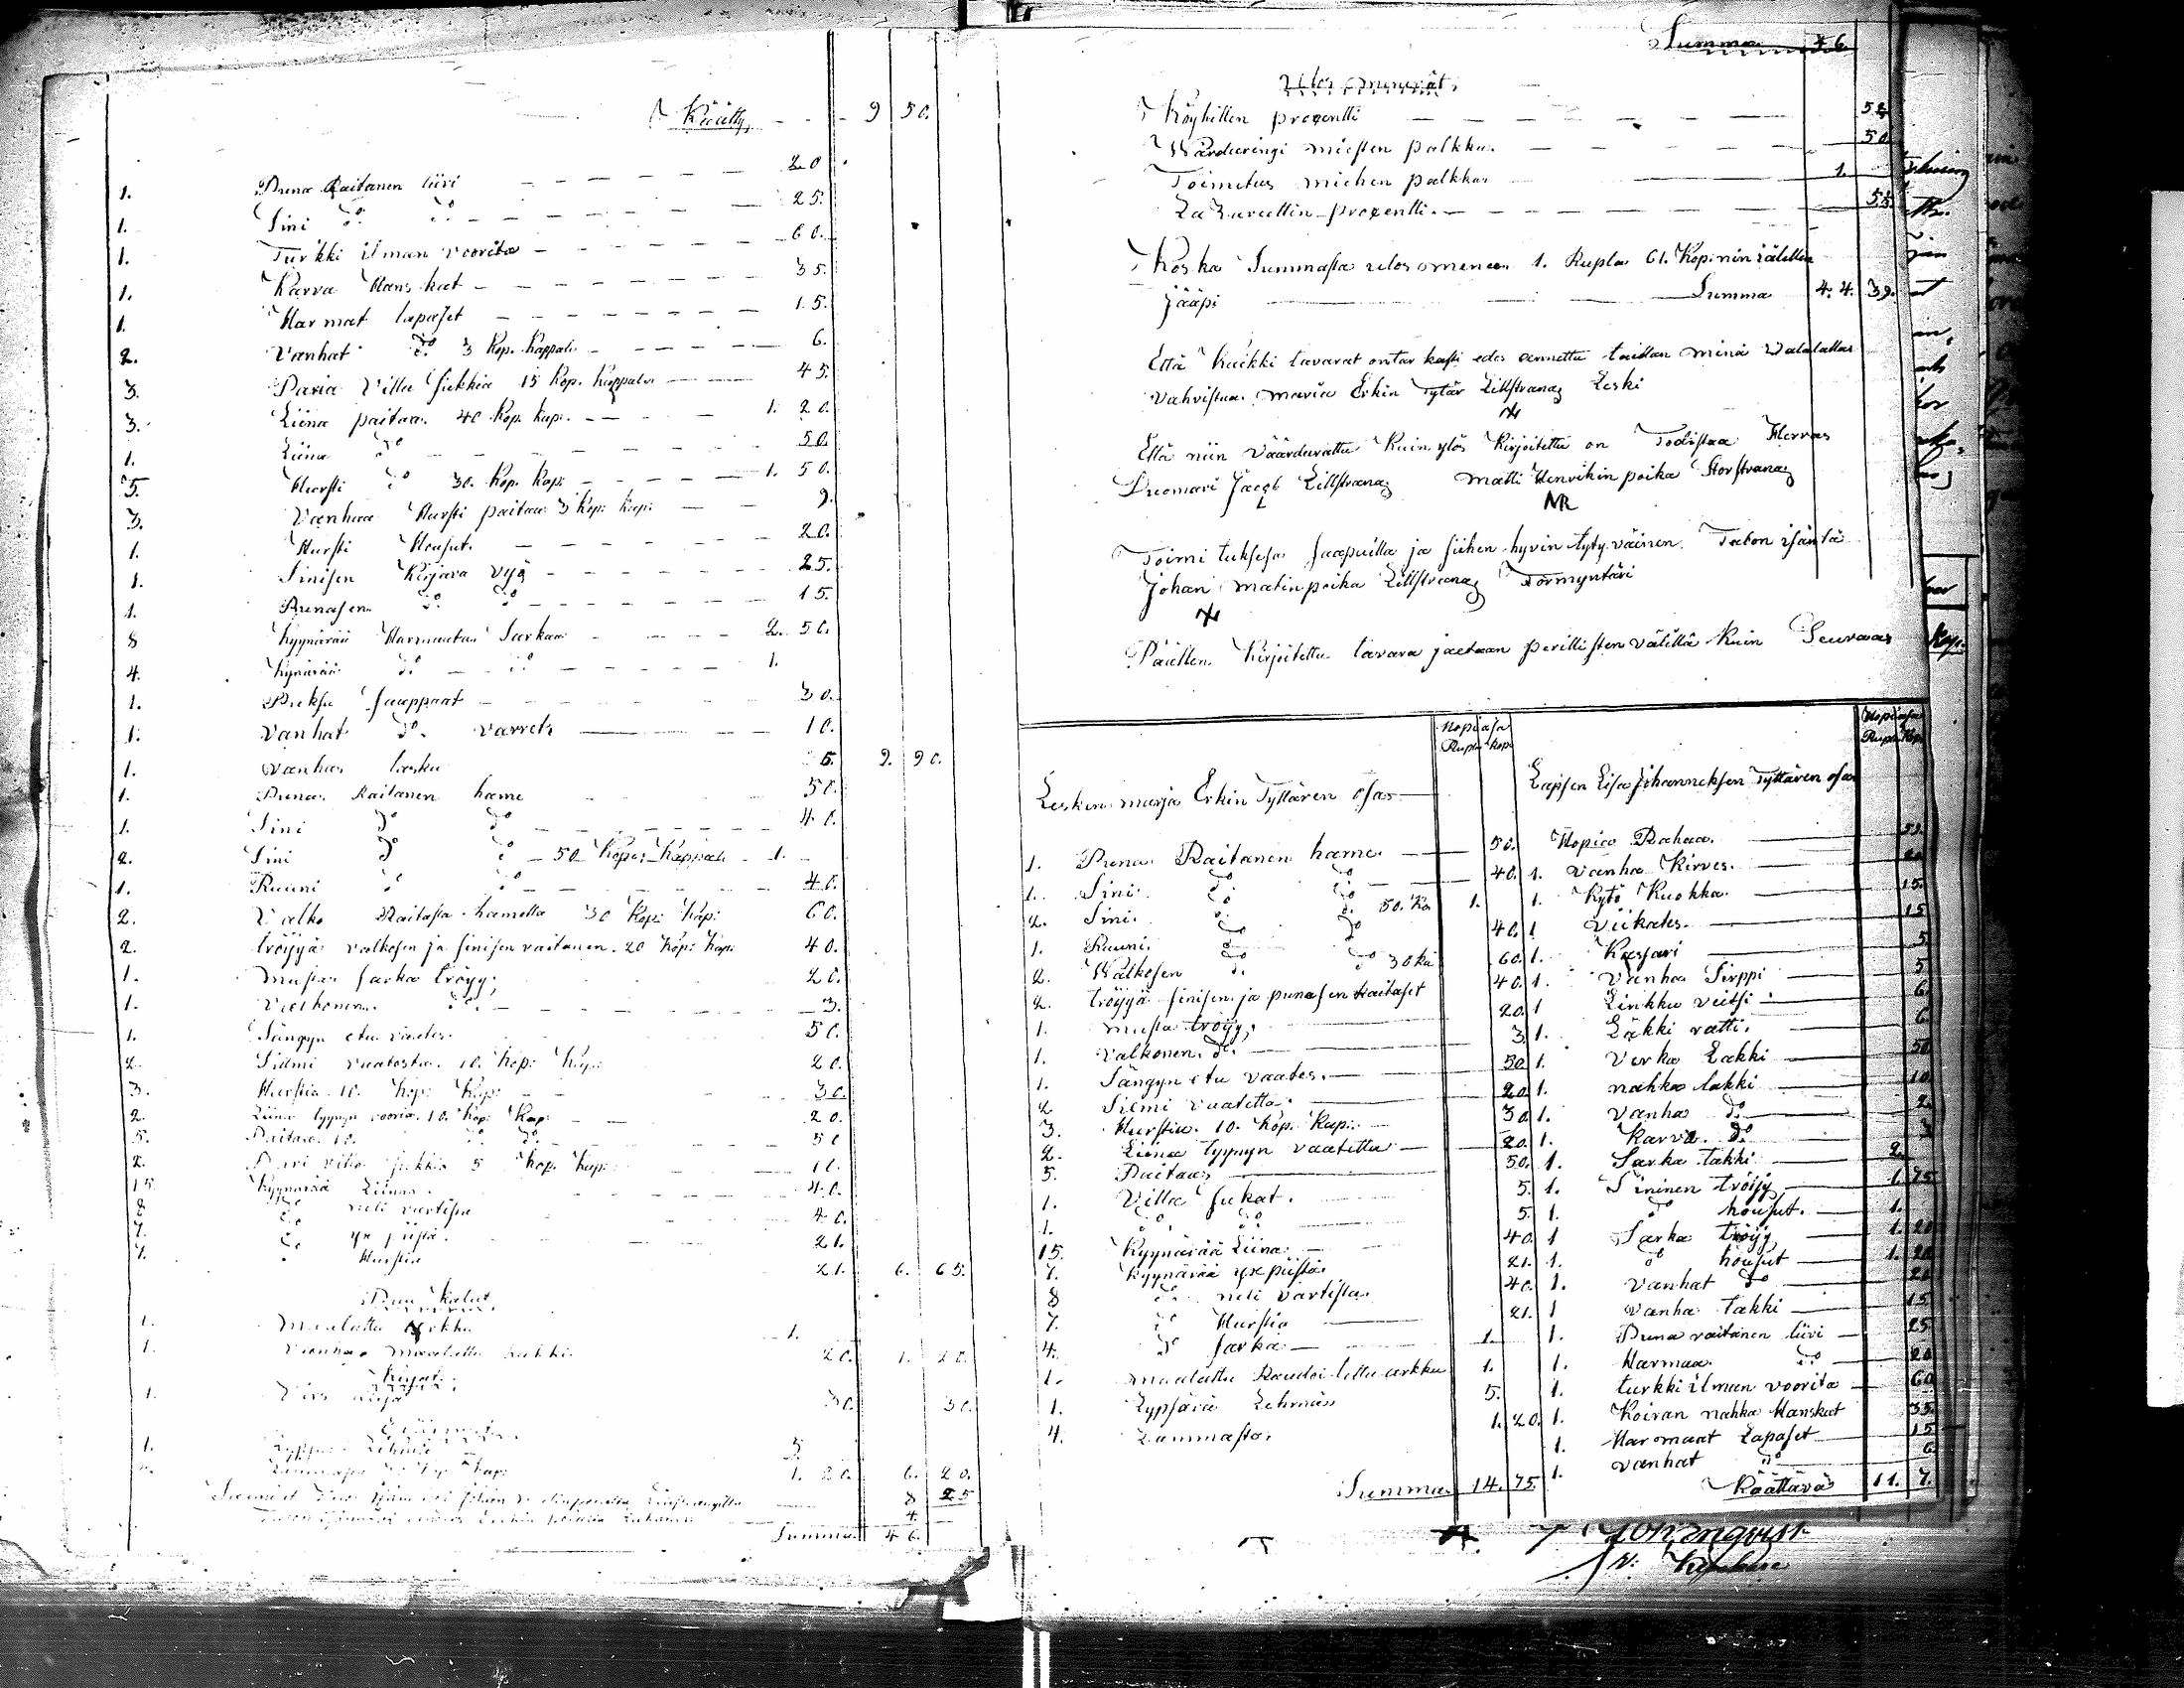 Käätty, 9 50.
1. Puna Raitanen liivi 20
1. Sini do do 25.
1. Turkki ilman voorita 60.
1. Karva Hanskat 35.
1. Harmat lapaset 15.
2. Vanhat do 3 Kop. Kappale 6.
3. Paria Villa sukkia 15 Kop. Kappale 45.
3. Liina paitaa 40 Kop. kap. 1. 20.
1. Liina do 50.
5. Hursti do 30. Kop. Kap. 1. 50.
3. Vanhaa Hursti paitaa 3 Kop. Kap. 9.
1. Hursti Housut. 20.
1. Sinisen Kirjava vyö 25.
1. Punasen do do 15.
8 Kyynärää Harmaata Sarkaa 2. 50.
4. Kynärää do do 1.
1. Puksu saappaat 30.
1. Vanhat do varret 10.
1. Vanha lasku 5. 9. 90.
1. Puna Raitanen hame 50.
1. Sini do do 40.
2. Sini do do 50 Kop. Kappale 1.
1. Ruuni do do 40.
2. Valko Raitasta hametta 30 Kop. Kap. 60.
2. tröyjyä valkosen ja sinisen raitanen. 20 Kop. Kap. 40.
1. Musta sarka tröyy, 20.
1. Valkonen do 3.
1. Sängyn etu vaates. 50.
2. Silmi vaatosta. 10. Kop. Kap. 20.
3. Hurstia 10. Kop. Kap. 30.
2. Liina tyynyn vooria. 10. Kop. Kap. 20.
5. Paitaa 10. do do 50
2. Pari villa sukkia 5 Kop. Kap. 10.
15. Kyynärää Liinaa. 40.
8 do neli vartista 40.
7. do yx piistä. 21.
7. do Hurstia 21. 6. 65.
Puu Kalut
1. Maalattu Arkku 1.
1. Vanha Maalattu kaekki 20. 1. 20.
Kirjat.
1. Virs kirja 30. 30.
1. Lypsävä Lehmä 5.
4. Lammasta 30 Kop. Kap. 1. 20. 6. 20.
8 25
4.
Summa 46.
Summa 46.
Ulos menevät,
Köyhitten prosentti 52
Wärderingi miesten palkka. 50
Toimitus miehen palkka 1.
Lazarettin prosentti. 52.
Koska Summasta ulos menee 1. Rupla 61. Kop. nin jälellen
jääpi Summa 44. 39.
Että Kaikki tavarat ontar kasti edes annettu taidan minä Valalallas
vahvistaa. Maria Erkin Tytär Lillstrang Leski
Että niin väärdurattu Kuin ylös Kirjoitettu on Todistaa Herras
Duomari Jacob Lillstrang Matti Henrikin poika Storstrang
Toimi tuksesa saapuilla ja siihen hyvin tyty väinen. Talon isäntä
Johan Matinpoika Lillstrang Förmyntäri
Päällen Kirjoitettu tavara jaetaan perillisten välillä Kuin Seuraas
Hopiasa Rupla Kop.
Lesken Marja Erkin Tyttären osa
1. Puna Raitanen hame 50.
1. Sini do do 40.
2. Sini do do 50. Ka 1.
1. Ruuni. do do 40.
2. Walkosen do do 30 ka 60.
2. tröyjyä sinisen ja punasen Raitaset 40.
1. Musta tröyy, 20.
1. Valkonen do 3.
1. Sängyn etu vaates. 50
2 Silmi vaatetta. 20.
3. Hurstia. 10. Kop. Kap. 30.
2. Liina tyynyn vaatetta 20.
5. Paitaa 50.
1. Villa sukat. 5.
1. do do 5.
15. Kyynärää Liina 40.
7. Kyynärää yx piistä 21.
8 do neli vartista 40.
7. do Hurstia 21.
4. do sarka 1.
1. Maalattu Raudoitettu arkku 1.
1. Lypsävä Lehmä 5.
4. Lammasta 1. 20.
Summa 14. 75.
Hopiasa Rupla Kop.
Lapsen Lisa Johanneksen Tyttären osa
Hopia Rahaa. 52.
1. Vanha Kirves. 20
1. Kytö Kuokka 15.
1 Viikates. 15
1. Kassari 5
1. Vanha Sirppi 5
1 Linkku veitsi 6.
1. Läkki ratti. 6
1. Verka Lakki 50
1. nahka lakki 10
1. Vanha do 2
1. Karva do 3
1. Sarka takki 2.
1. Sininen tröijy 1. 75
1. do housut. 1.
1 Sarka tröyy 1. 20
1. do housut 1. 20
1. Vanhat do 20
1 Vanha takki 15
1. Puna raitanen liivi 25
1. Harmaa do 20
1. turkki ilman voorita 60
1. Koiran nahka Hanskat 35.
1. Harmaat Lapaset 15
1. vanhat do 6.
Käättävä 11. 7.